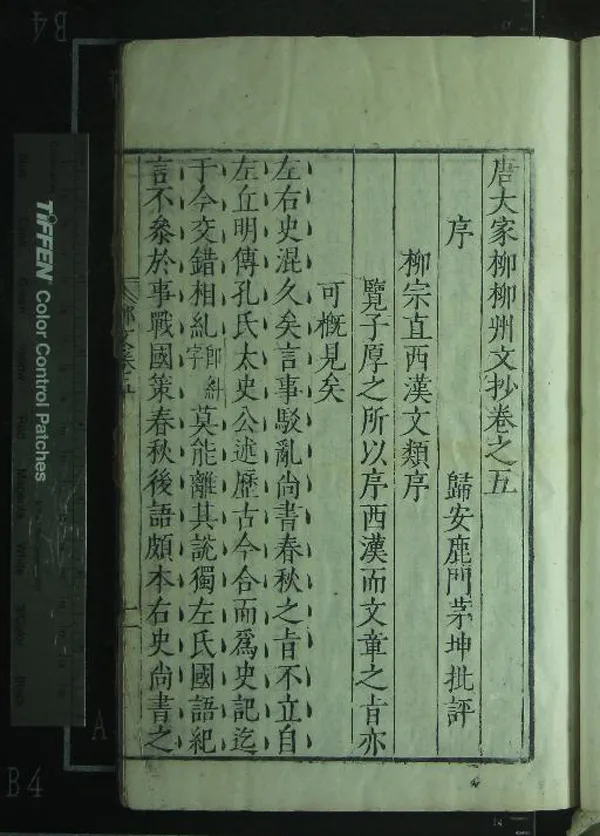 唐大家柳柳州文抄卷之五
歸安鹿門茅坤批評
序
柳宗直西漢文類序
覽子厚之所以序西漢而文章之旨亦
可概見矣
左右史混久矣言事駁亂尚書春秋之旨不立自
左丘明傳孔氏太史公述歷古今合而爲史記迄
于今交錯相糺卽糾字莫能離其說獨左氏國語紀
言不叅於事戰國策春秋後語頗本右史尚書之
TIFFEN Color Control Patches
B4
B4
A